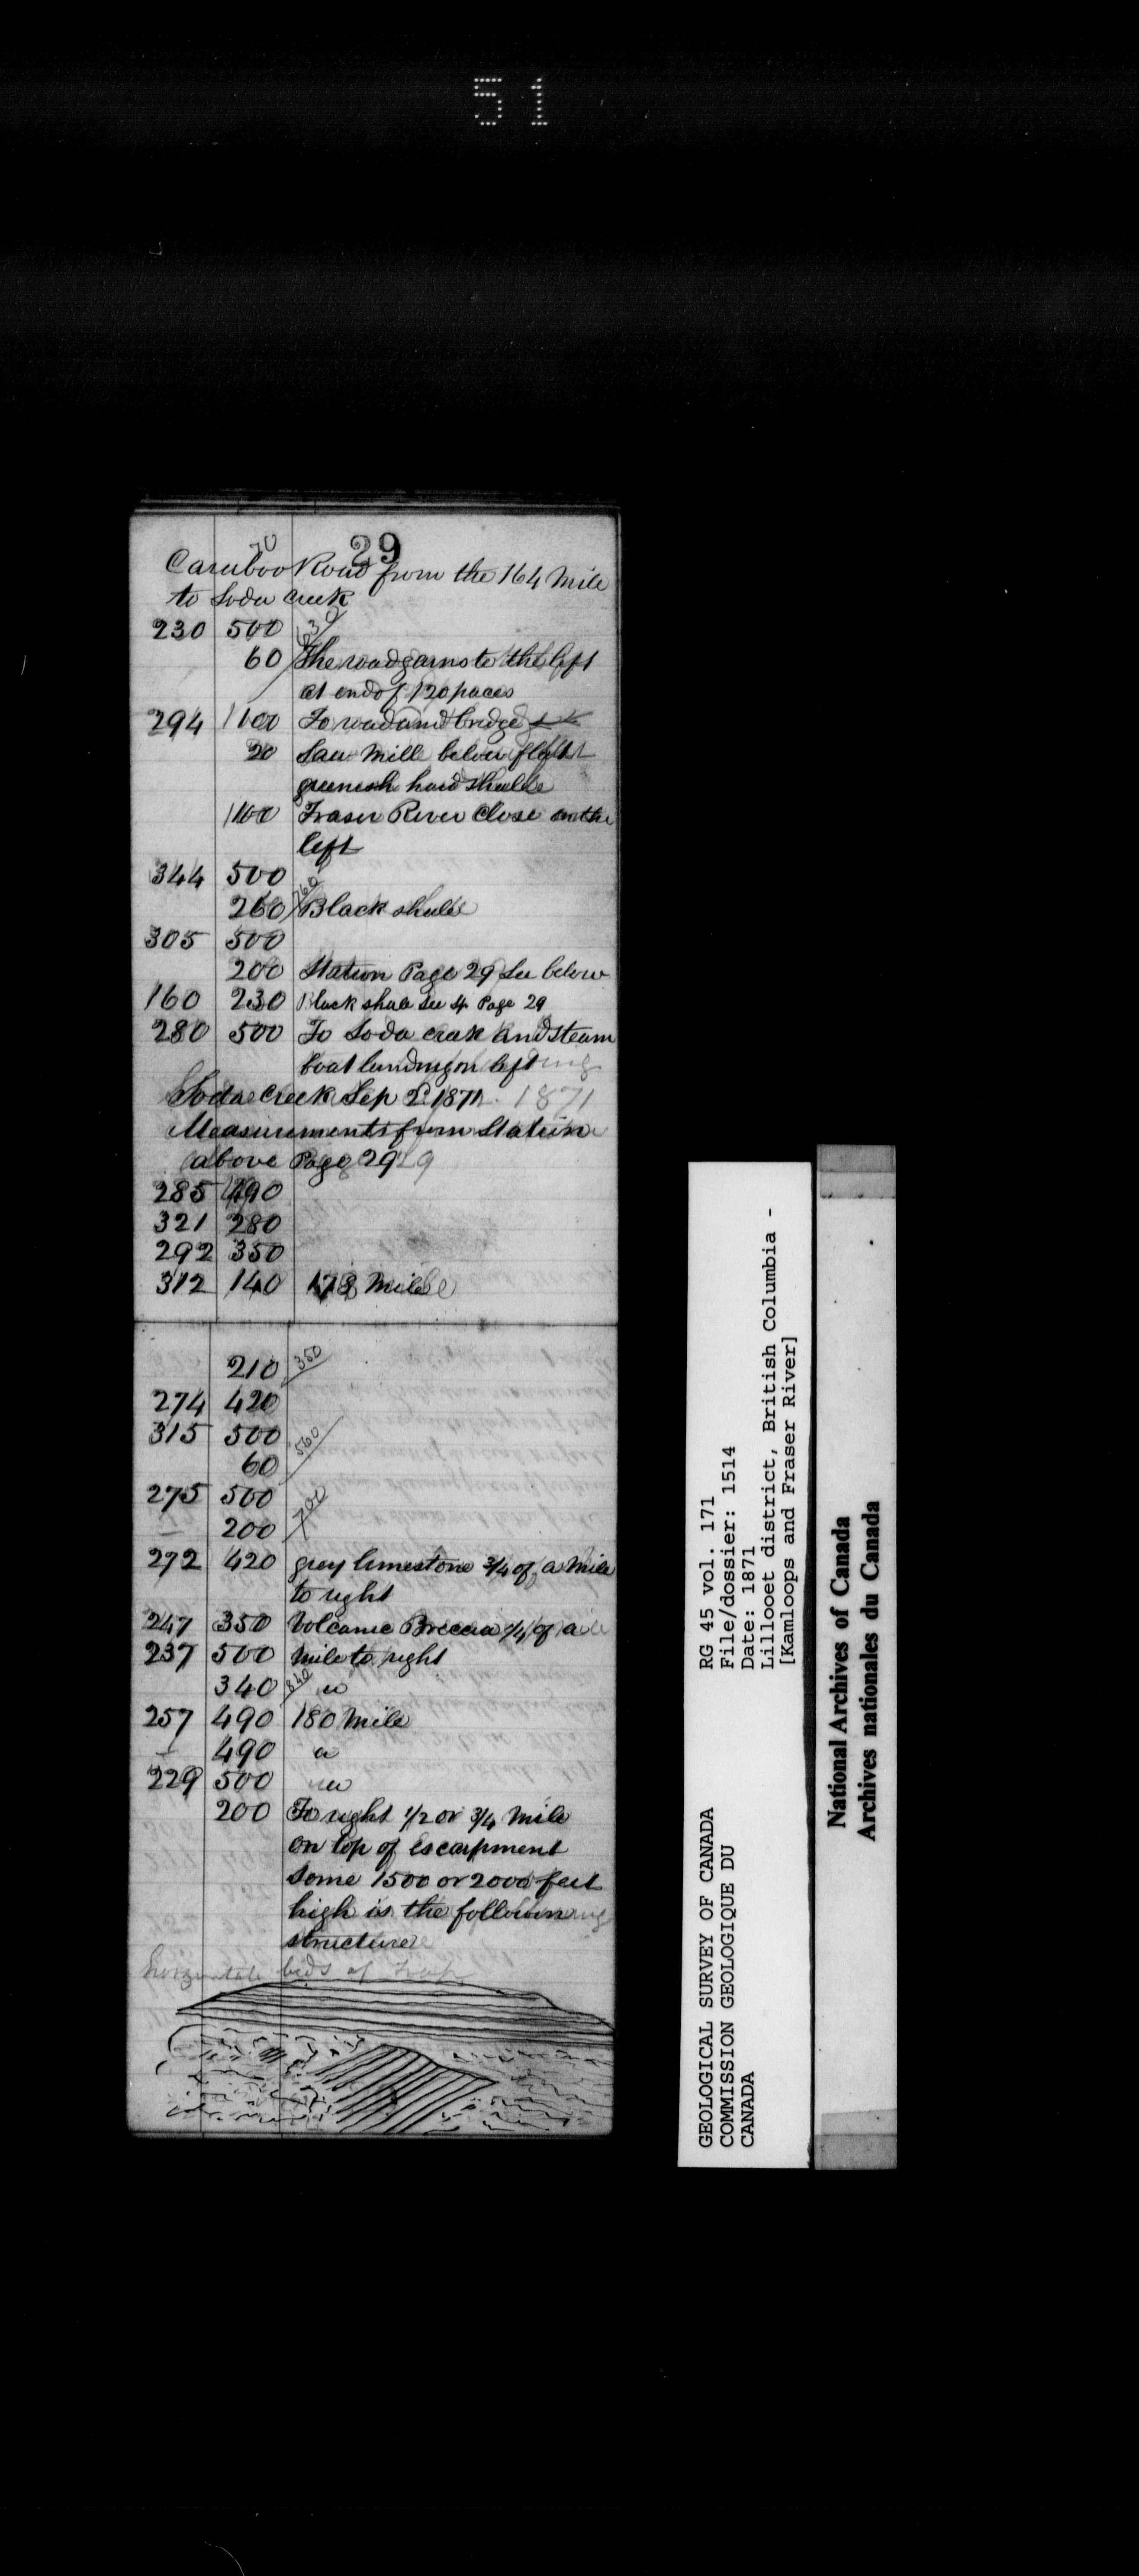 51
29
70
Caruboo Road from the 164 Mile
to Soda Creek
230 500
60 The road gains to the left
at end of 120 paces
294 1100 To road and bridge
20 Saw Mill below flat
greenish hard shale
1100 Fraser River close on the
left
344 500
260 Black shale
760
305 500
200 Station Page 29 See below
160 230 Black shale See 4 Page 29
280 500 To Soda creek and steam
boat landing on left
Soda Creek Sep 2d 1871
Measurements from Station
above Page 29
285 490
321 280
292 350
312 140 178 Mile
210 350
274 420
315 500
60 560
275 500
— 200 700
272 420 grey limestone 3/4 of a Mile
to right
247 350 Volcanic Breccia 1/4 of a
237 500 Mile to right
340 840 "
257 490 180 Mile
— 490 "
229 500 "
200 To right 1/2 or 3/4 Mile
on top of escarpment
some 1500 or 2000 feet
high is the following
structure
horizontal beds of Trap
GEOLOGICAL SURVEY OF CANADA
COMMISSION GEOLOGIQUE DU
CANADA
RG 45 vol. 171
File/dossier: 1514
Date: 1871
Lillooet district, British Columbia -
[Kamloops and Fraser River]
National Archives of Canada
Archives nationales du Canada